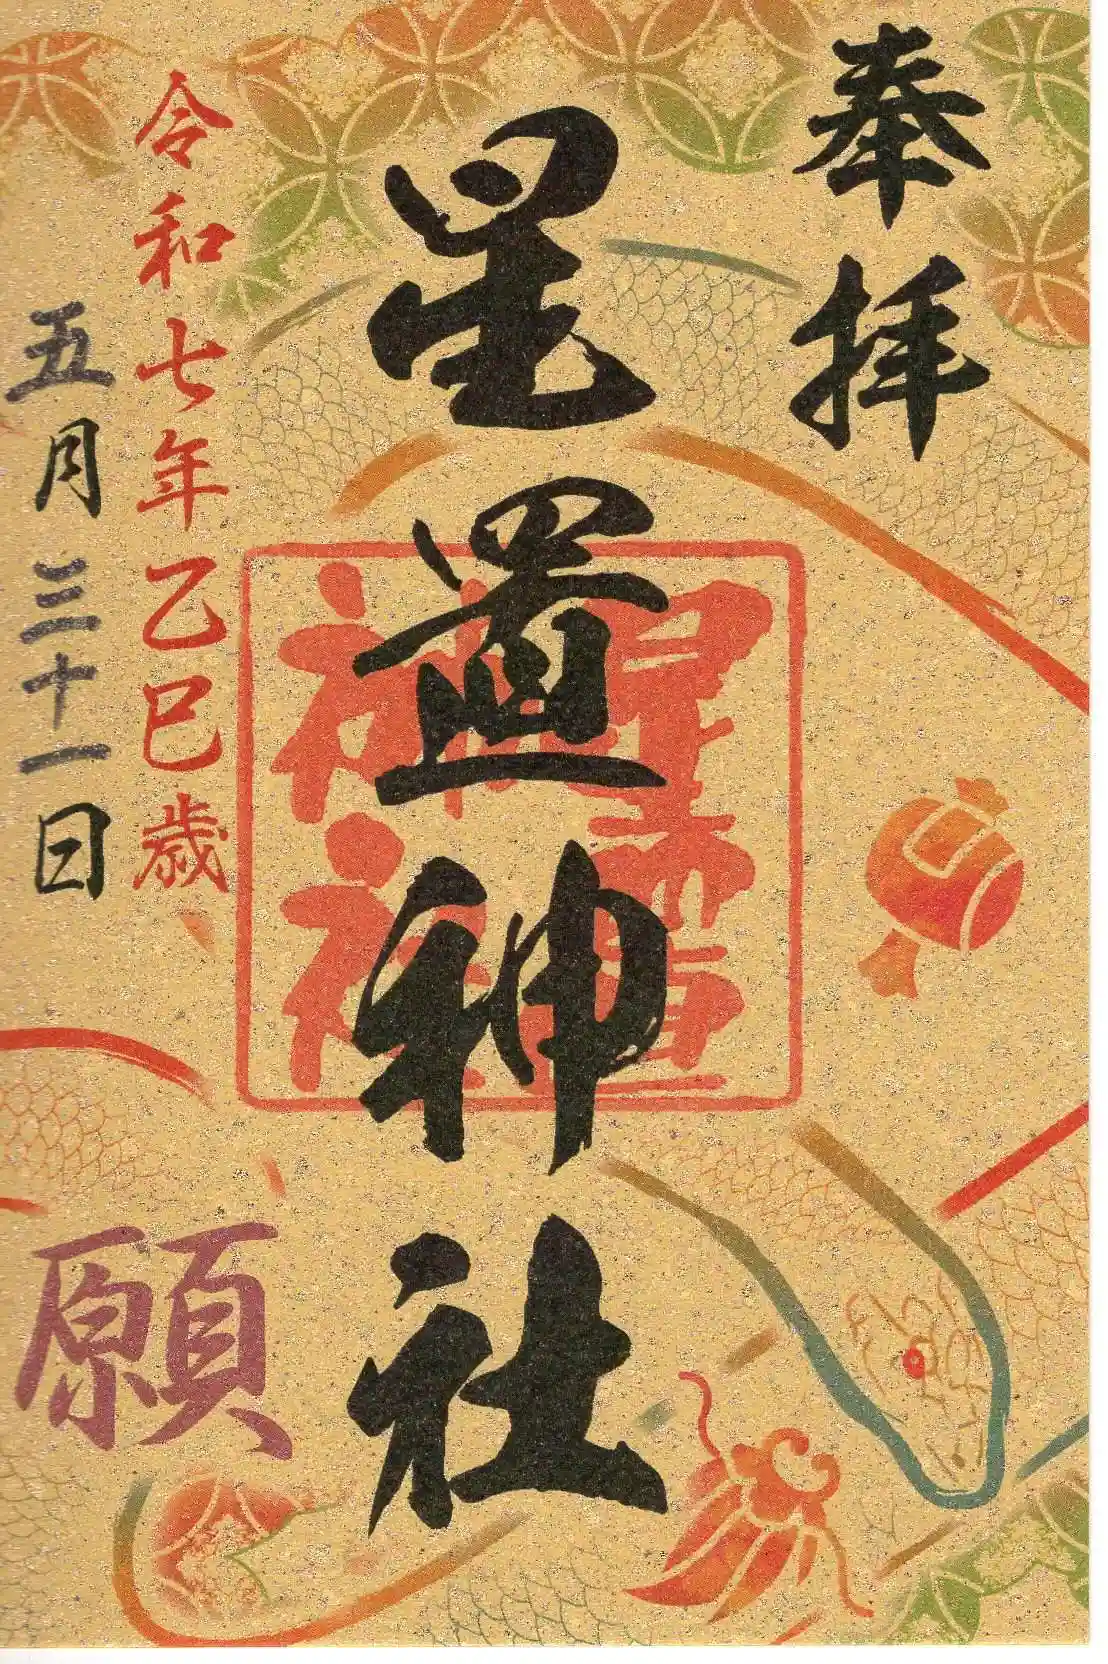 奉拝
星置神社
星置神社
令和七年乙巳歳
五月三十一日
願